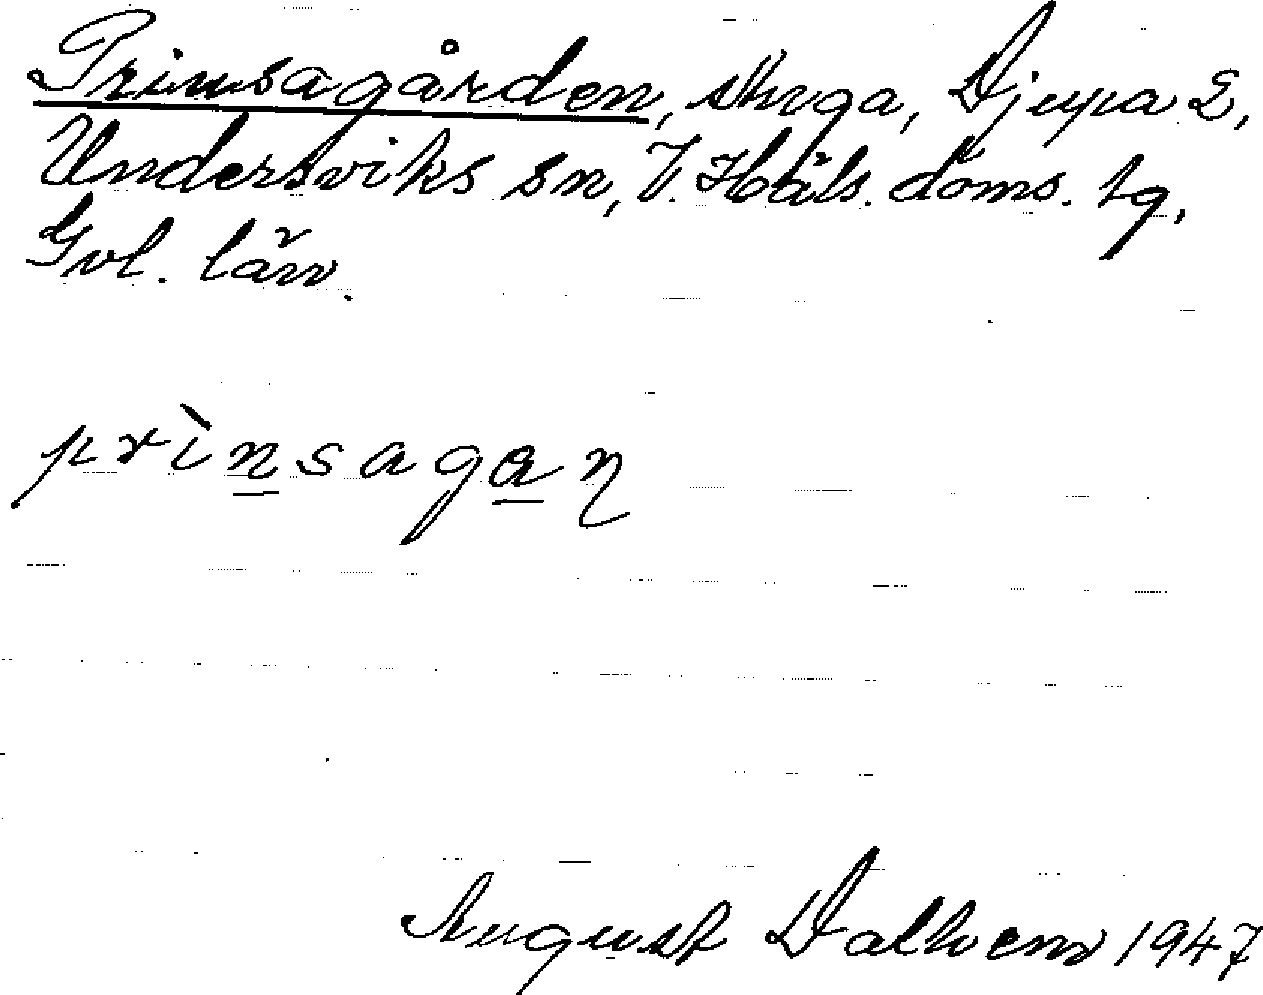 Prinsagården, stuga, Djupa 2,
Undersviks sn, V. Häls. doms. tg,
Gvl. län.
prìnsagaɳ
August Dalhem 1947